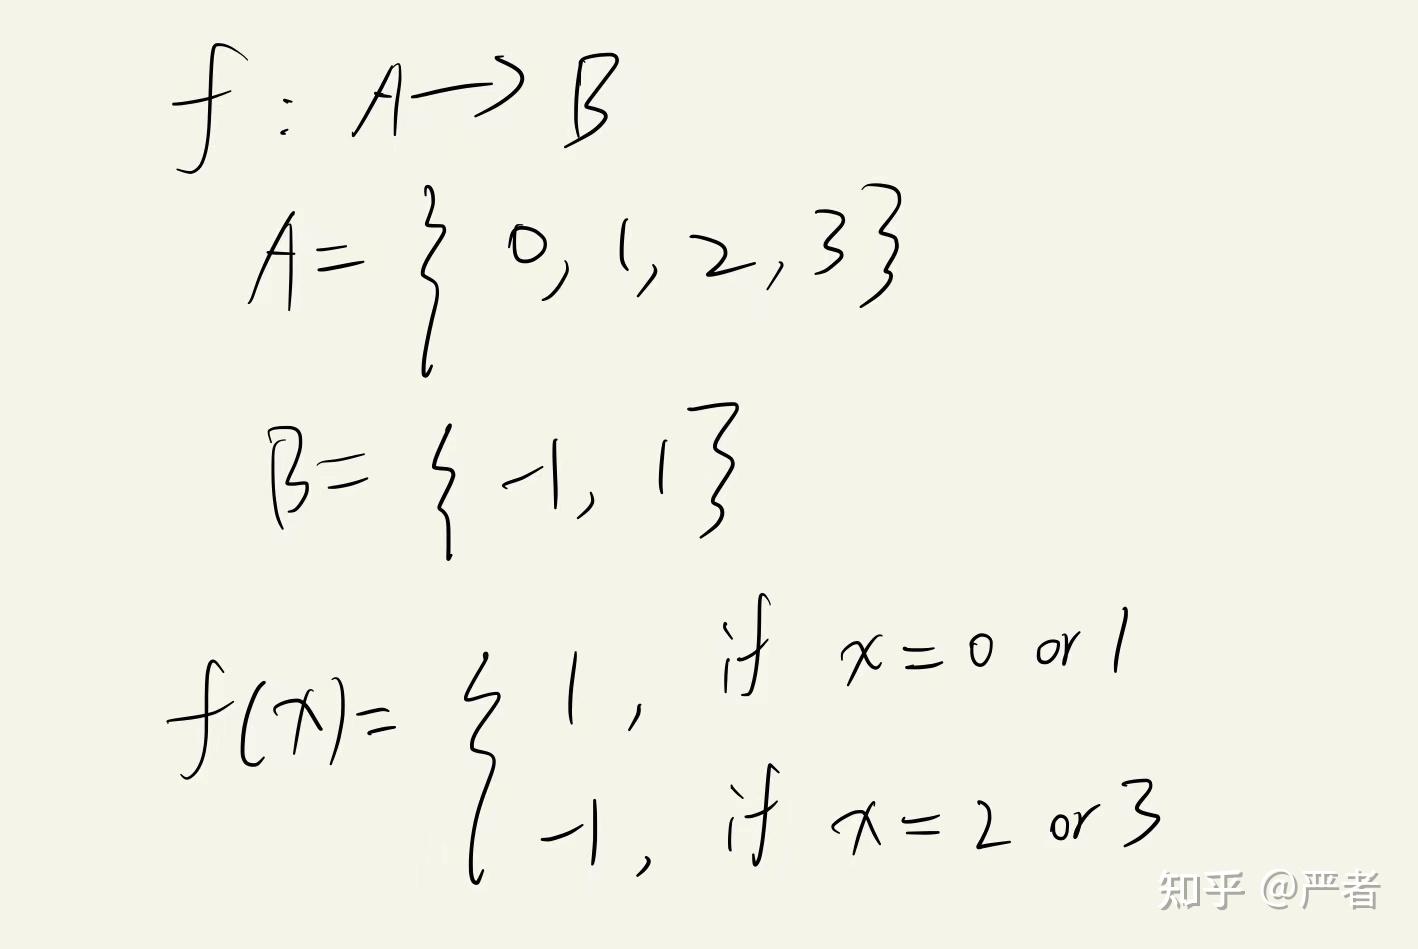 f : A → B
A = { 0, 1, 2, 3 }
B = { -1, 1 }
f(x) = { 1, if x = 0 or 1
-1, if x = 2 or 3
知乎 @严者